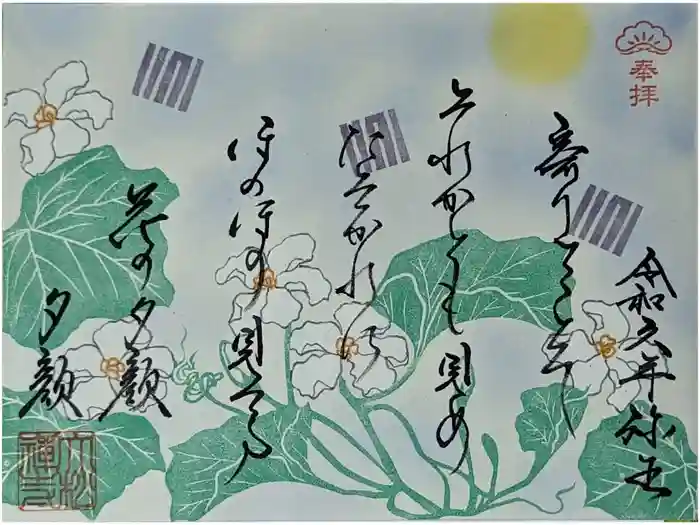 奉拝
令和六年弥生
寄りてこそ
それかとも見め
たそかれに
ほのほの見つる
花の夕顔
夕顔